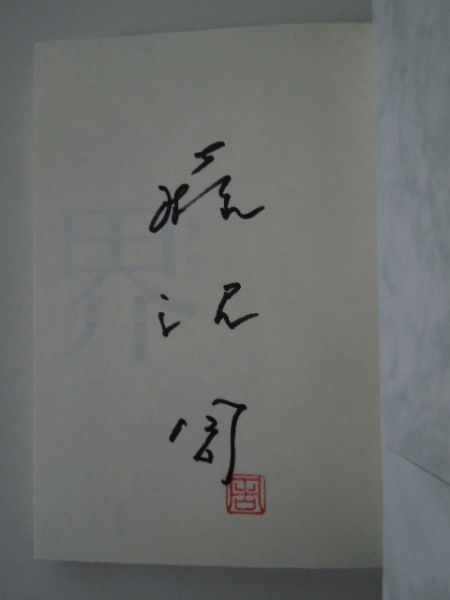 藤沢周
周
界